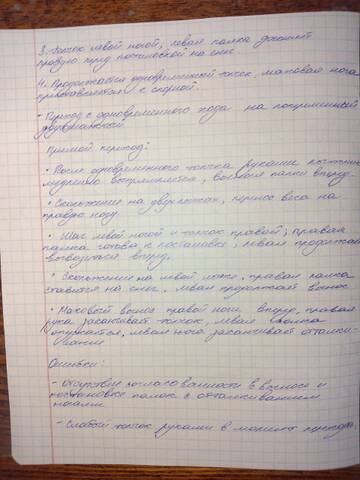 3. Толчок левой ногой, левая палка догоняет
правую перед постановкой на снег.
4. Продолжается одновременный толчок, маховая нога
приставляется к опорной.
- Переход с одновременного хода на попеременный
двухшажный
Прямой переход:
• После одновременного толчка руками лыжник
медленно выпрямляется, вынося палки вперед
• Скольжение на двух лыжах, перенос веса на
правую ногу.
• Шаг левой ногой и толчок правой; правая
палка готова к постановке, левая продолжает
выводиться вперед.
• Скольжение на левой лыже, правая палка
ставится на снег, левая продолжает вынос.
• Маховый вынос правой ноги вперед, правая
рука заканчивает толчок, левая палка
опускается, левая нога заканчивает отталки-
вание
Ошибки:
- Отсутствие согласованности в выносе и
постановке палок с отталкиванием
ногами
- Слабый толчок руками в момент перехода,